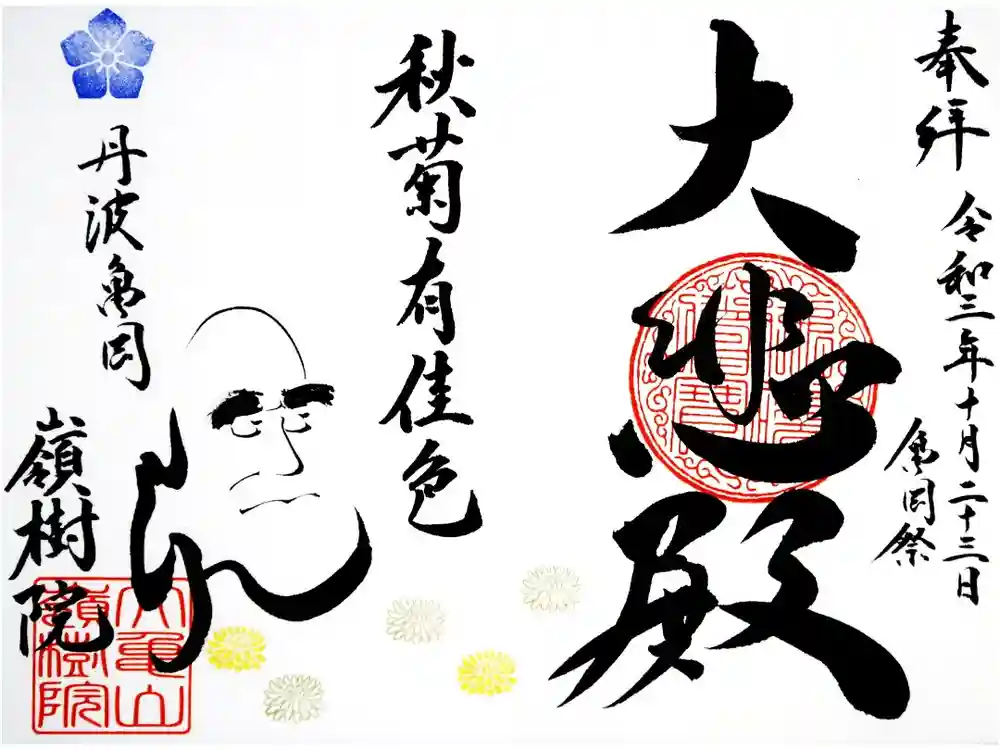 奉拝
令和三年十月二十三日
亀岡祭
大悲殿
秋菊有佳色
丹波亀岡
嶺樹院
大亀山
嶺樹院